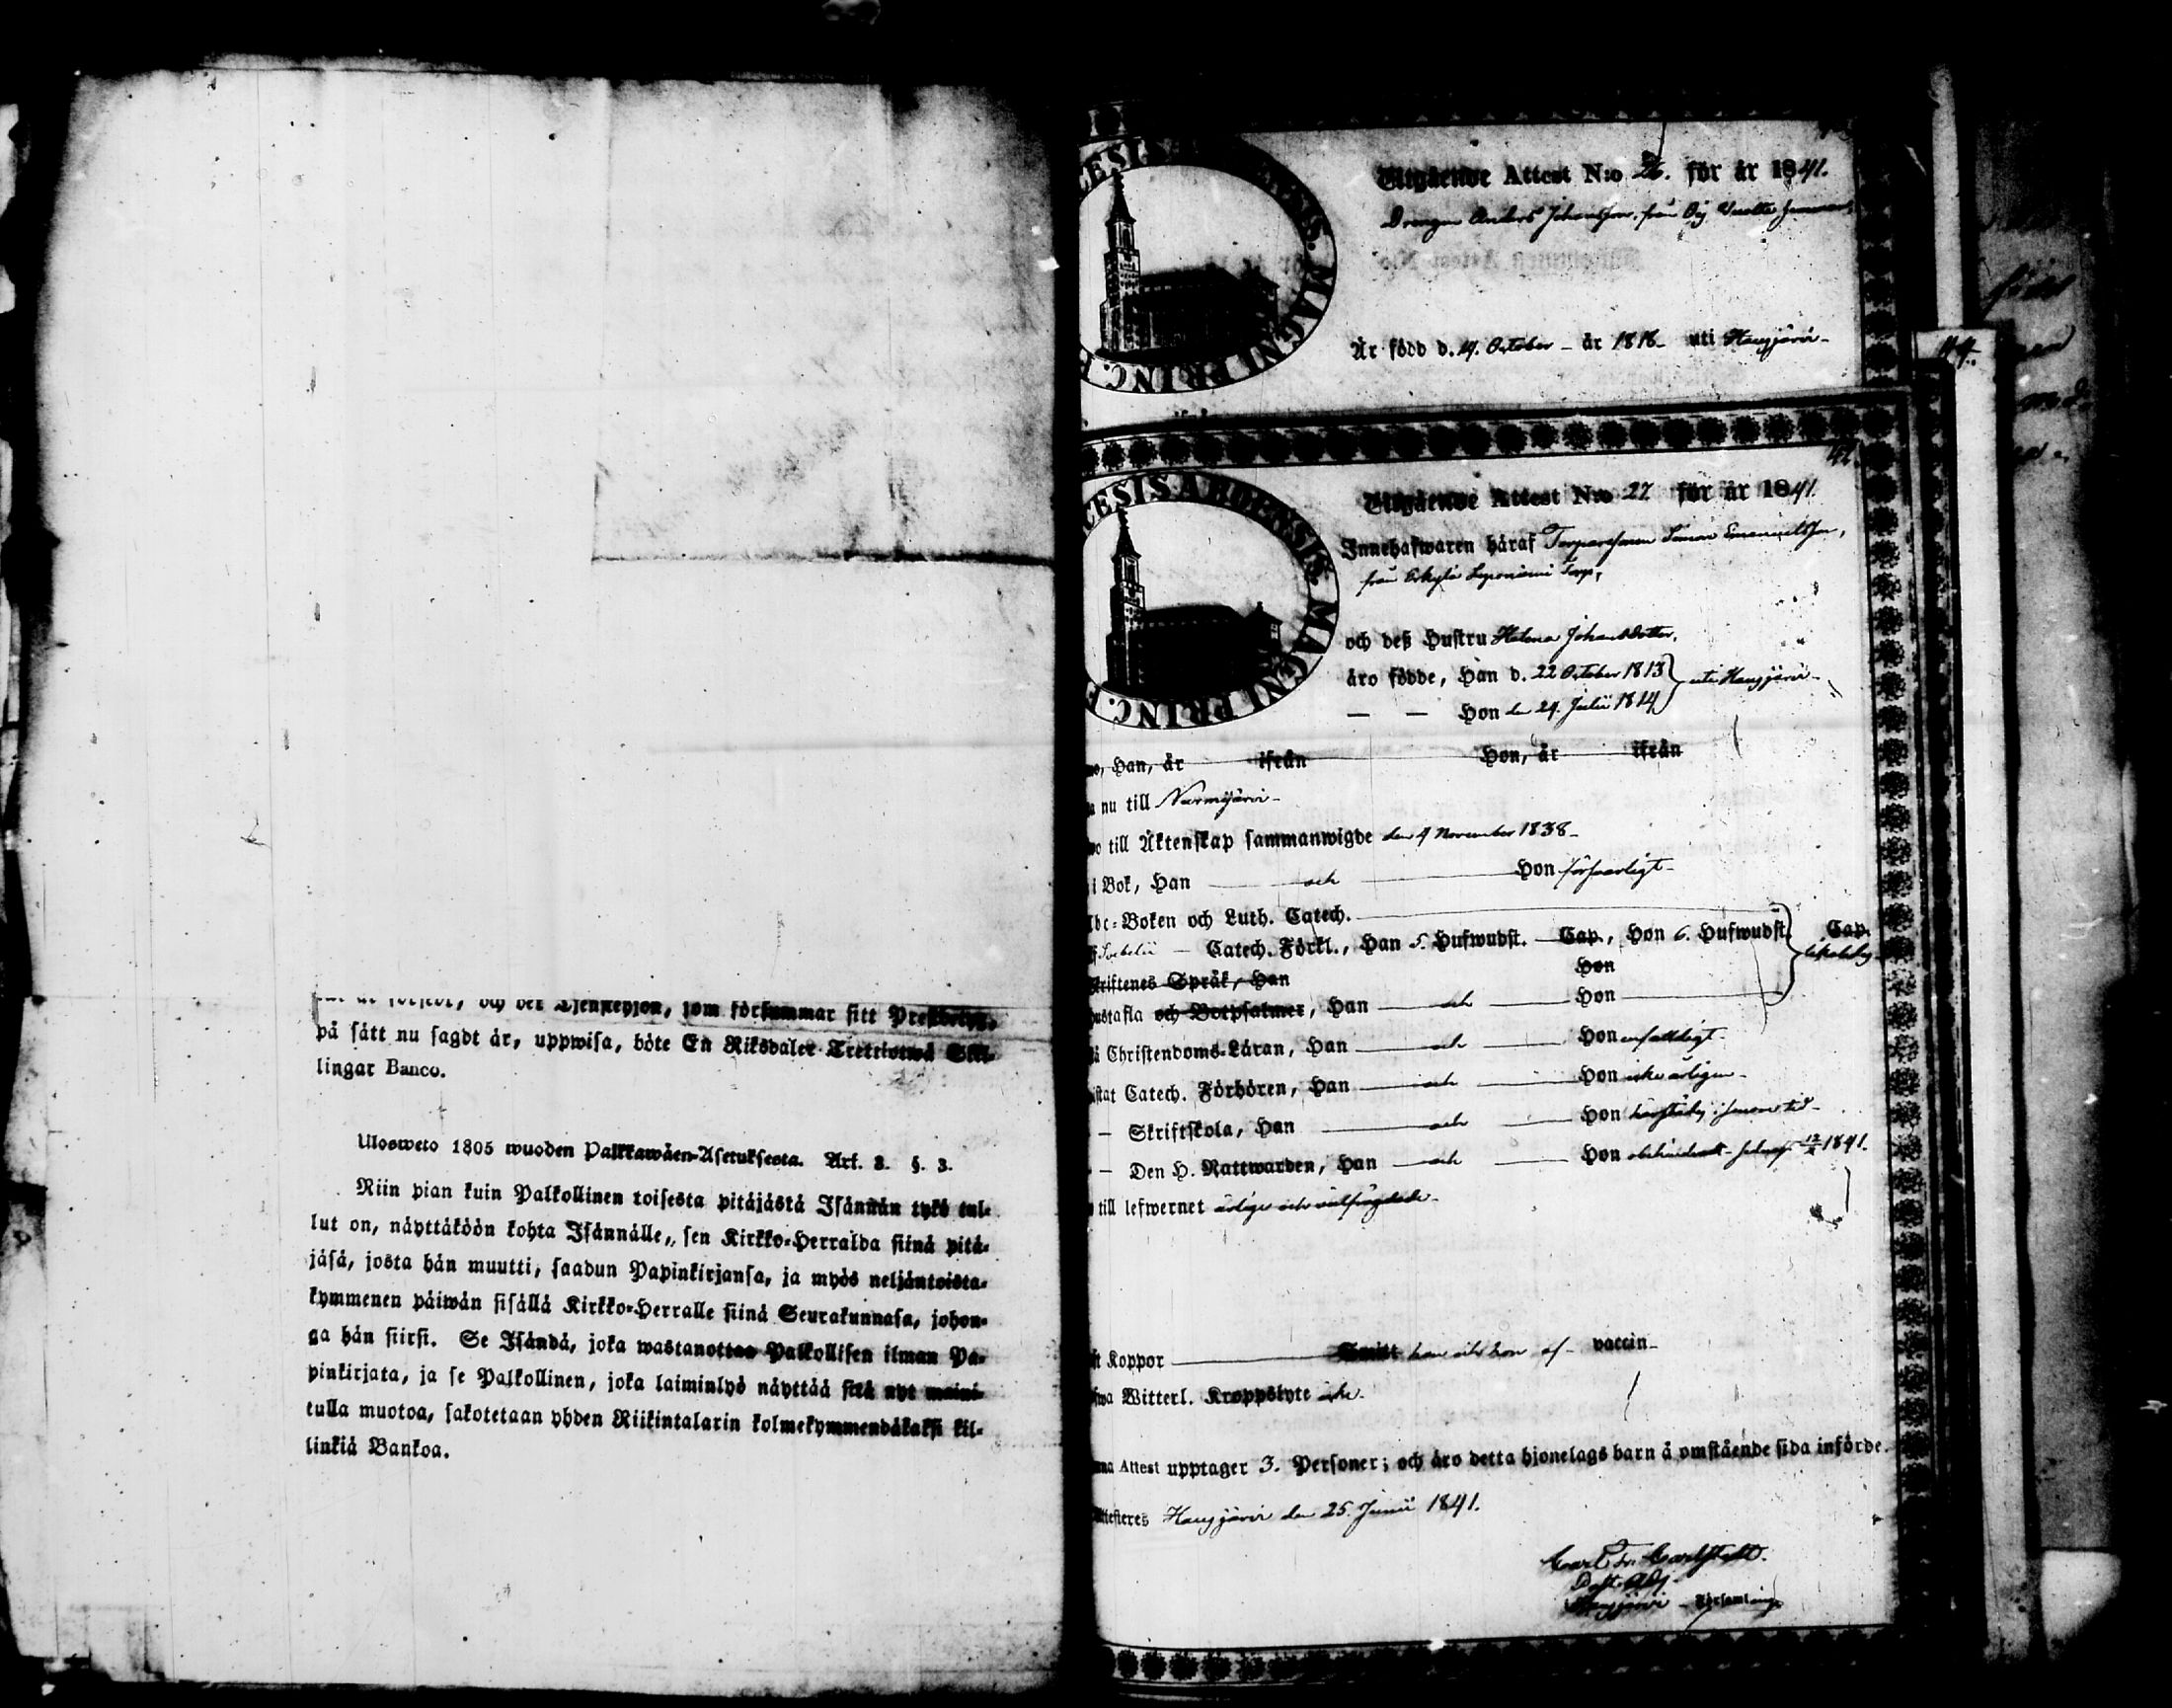 på sått nu sagdt år, uppwisa, böte En Riksdaler Trettiotwå Skil-
lingar Banco.
Ulosweto 1805 wuoden Palkkawäen-Asetuksesta. Art. 8. §. 3.
Niin pian kuin Palkollinen toisesta pitäjästä Isännän tykö tul-
lut on, näyttäköön kohta Isännälle, sen Kirkko-Herralda siinä pitä-
jäsä, josta hän muutti, saadun Papinkirjansa, ja myös neljäntoista-
kymmenen päiwän sisällä Kirkko-Herralle siinä Seurakunnasa, johon-
ga hän siirsi. Se Isändä, joka wastanottaa Palkollisen ilman Pa-
pinkirjata, ja se Palkollinen, joka laiminlyö näyttää sitä nyt maini-
tulla muotoa, sakotetaan yhden Riikintalarin kolmekymmendäkaksi kil-
linkiä Bankoa.
Utgående Attest N:o 26. för år 1841.
Drengen Anders Johansson, från
Är född d. 14. October – år 1818 – uti Hausjärvi –
DIOECESIS ABOENSIS. MAGNI PRINC.
42.
Utgående Attest N:o 27 för år 1841.
Innehafwaren håraf Torparesonen Simon Emanuelsson,
från Erkylä Torp,
och deß Hustru Helena Johansdotter,
äro födde, Han d. 22 October 1813 uti Hausjärvi –
— — Hon den 29. Julii 1814
Han, år ifrån Hon, år ifrån
nu till Nurmijärvi –
till Äktenskap sammanwigde den 4 November 1838 –
i Bok, Han och Hon försvarligt –
Abc-Boken och Luth. Catech.
Catech. Förkl., Han 5. Hufwudst. Cap., Hon 6. Hufwudst. Cap.
Skriftenes Språk, Han Hon
Hustafla och Botpsalmer, Han och Hon
Christendoms-Läran, Han och Hon enfaldigt –
Catech. Förhören, Han och Hon icke årligen –
– Skriftskola, Han och Hon
– Den H. Nattwarden, Han och Hon obehindradt – 1841.
till lefwernet ärlige och välfrägdade –
Koppor han och hon af – vaccin –
Witterl. Kroppslyte icke.
Attest upptager 3. Personer; och äro detta hjonelags barn å omstående sida införde.
Attesteres Hausjärvi den 25. Junii 1841.
Carl Fr. Carlstedt.
Past. Adj.
Hausjärvi – Församling